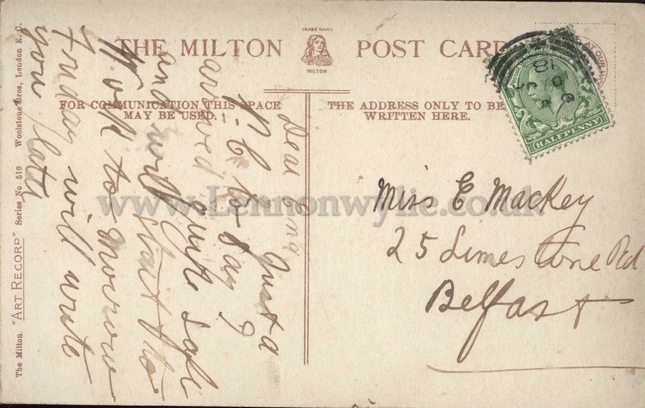 TRADE MARK
THE MILTON POST CARD
MILTON
FOR COMMUNICATION THIS SPACE
MAY BE USED.
THE ADDRESS ONLY TO BE
WRITTEN HERE.
HALFPENNY
Dear Ema
Just a
P.C. to say I
arrived quite safe
and will start the
Work to Morrow
Friday will write
you later
Miss E Mackey
25 Limestone Rd
Belfast
The Milton "ART RECORD" Series No. 510 Woolstone Bros., London E.C.
www.Lennonwylie.co.uk